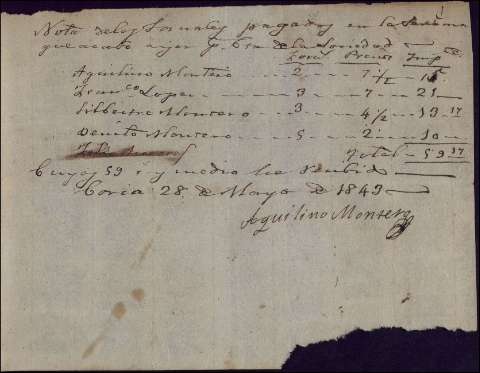 Nota delos Jornales pagados en la Semana
que acavó ayer pr. Cta. de la Sociedad
Jors. Precio Impte.
Aquilino Montero 2 7 1/2 15
Franco. Lopez 3 7 21
Silbestre Montero 3 4 1/2 13 17
Benito Montero 5 2 10
Total 59 17
Cuyos 59 rs y medio he recibido
Coria 28 de Mayo de 1843
Aquilino Montero